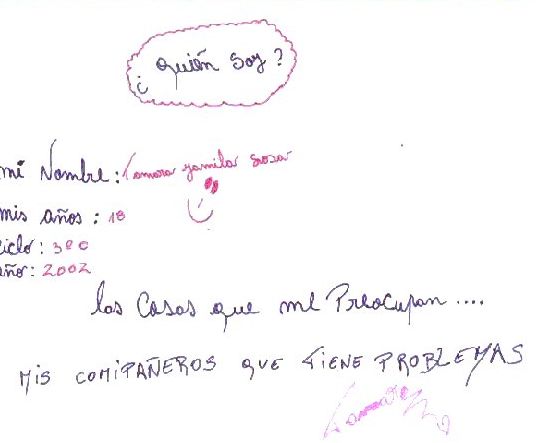 ¿ Quién soy ?
mi Nombre: Tamara yamila sosa
mis años : 18
ciclo: 3º C
año: 2002
las Cosas que me Preocupan ....
MIS COMPAÑEROS QUE TIENE PROBLEMAS